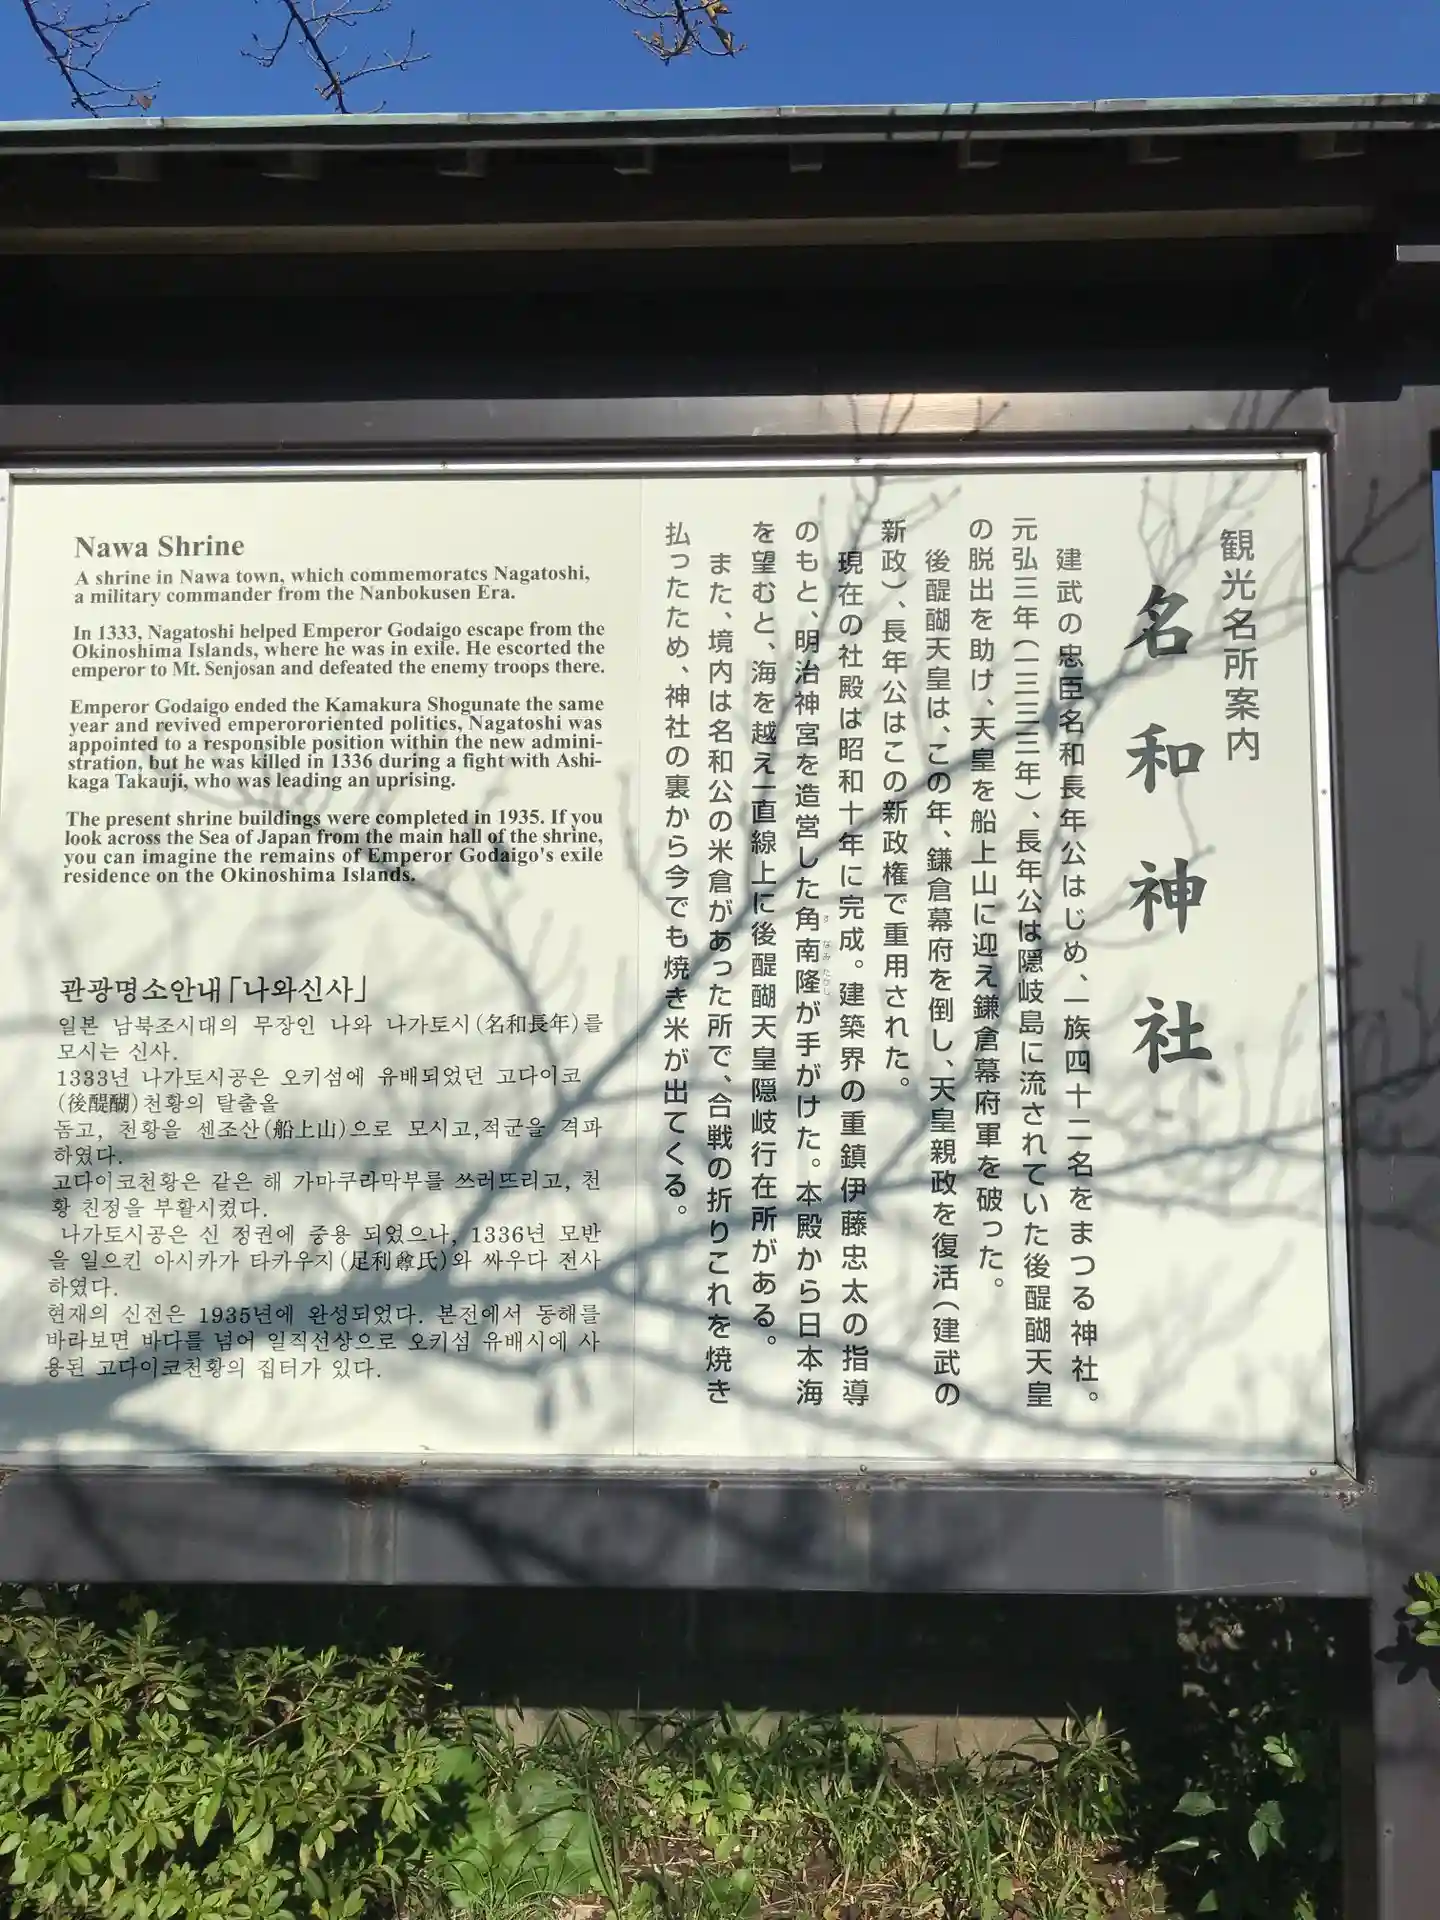 観光名所案内
名和神社
建武の忠臣名和長年公はじめ、一族四十二名をまつる神社。
元弘三年(一三三三年)、長年公は隠岐島に流されていた後醍醐天皇
の脱出を助け、天皇を船上山に迎え鎌倉幕府軍を破った。
後醍醐天皇は、この年、鎌倉幕府を倒し、天皇親政を復活(建武の
新政)、長年公はこの新政権で重用された。
現在の社殿は昭和十年に完成。建築界の重鎮伊藤忠太の指導
のもと、明治神宮を造営した角南隆が手がけた。本殿から日本海
を望むと、海を越え一直線上に後醍醐天皇隠岐行在所がある。
また、境内は名和公の米倉があった所で、合戦の折りこれを焼き
払ったため、神社の裏から今でも焼き米が出てくる。
Nawa Shrine
A shrine in Nawa town, which commemorates Nagatoshi,
a military commander from the Nanbokusen Era.
In 1333, Nagatoshi helped Emperor Godaigo escape from the
Okinoshima Islands, where he was in exile. He escorted the
emperor to Mt. Senjosan and defeated the enemy troops there.
Emperor Godaigo ended the Kamakura Shogunate the same
year and revived emperororiented politics, Nagatoshi was
appointed to a responsible position within the new admini-
stration, but he was killed in 1336 during a fight with Ashi-
kaga Takauji, who was leading an uprising.
The present shrine buildings were completed in 1935. If you
look across the Sea of Japan from the main hall of the shrine,
you can imagine the remains of Emperor Godaigo's exile
residence on the Okinoshima Islands.
관광명소안내「나와신사」
일본 남북조시대의 무장인 나와 나가토시(名和長年)를
모시는 신사.
1333년 나가토시공은 오키섬에 유배되었던 고다이코
(後醍醐)천황의 탈출올
돔고, 천황을 센조산(船上山)으로 모시고,적군을 격파
하였다.
고다이코천황은 같은 해 가마쿠라막부를 쓰러뜨리고, 천
황 친정을 부활시켰다.
나가토시공은 신 정권에 중용 되었으나, 1336년 모반
을 일으킨 아시카가 타카우지(足利尊氏)와 싸우다 전사
하였다.
현재의 신전은 1935년에 완성되었다. 본전에서 동해를
바라보면 바다를 넘어 일직선상으로 오키섬 유배시에 사
용된 고다이코천황의 집터가 있다.